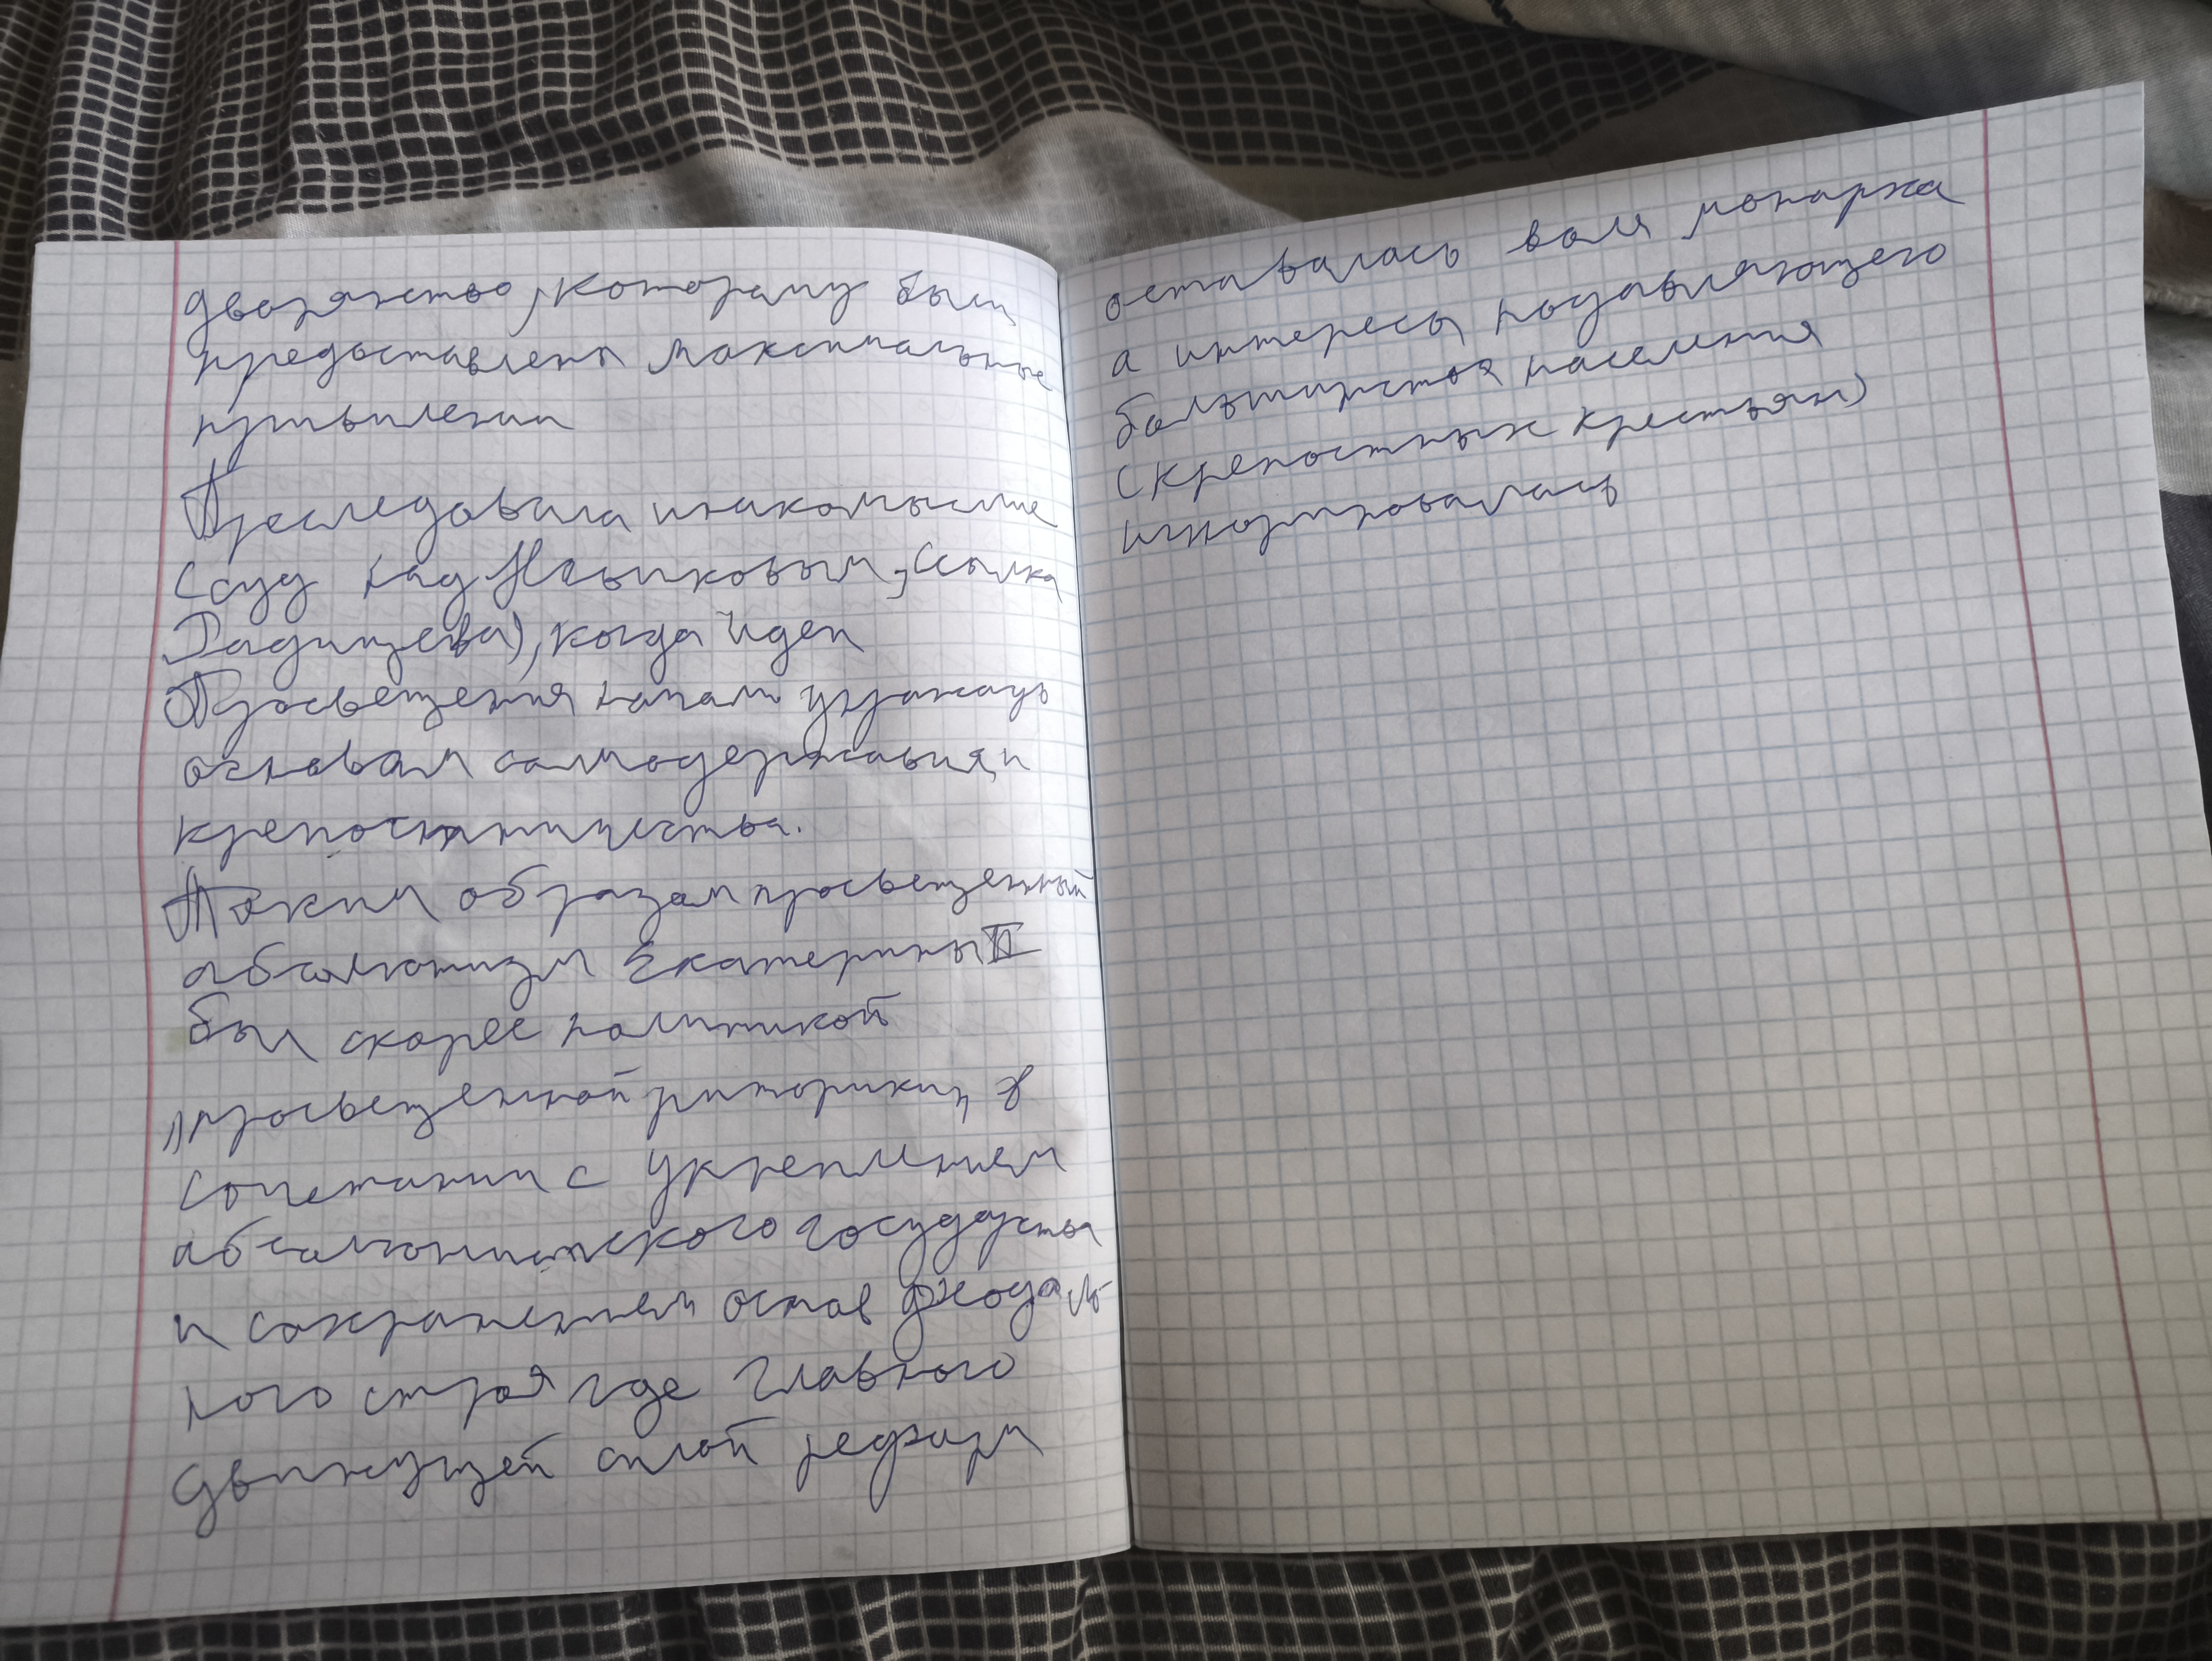 дворянство, которому был
предоставлены максимальные
привилегии
Преследовала инакомыслие
(суд над Новиковым, ссылка
Радищева), когда идеи
Просвещения начали угрожать
основам самодержавия и
крепостничества.
Таким образом просвещенный
абсолютизм Екатерины II
был скорее политикой
"просвещенной риторики" в
сочетании с укреплением
абсолютистского государства
и сохранением основ феодаль-
ного строя где главного
движущей силой реформ
оставалась воля монарха
а интересы подавляющего
большинства населения
(крепостных крестьян)
игнорировалась